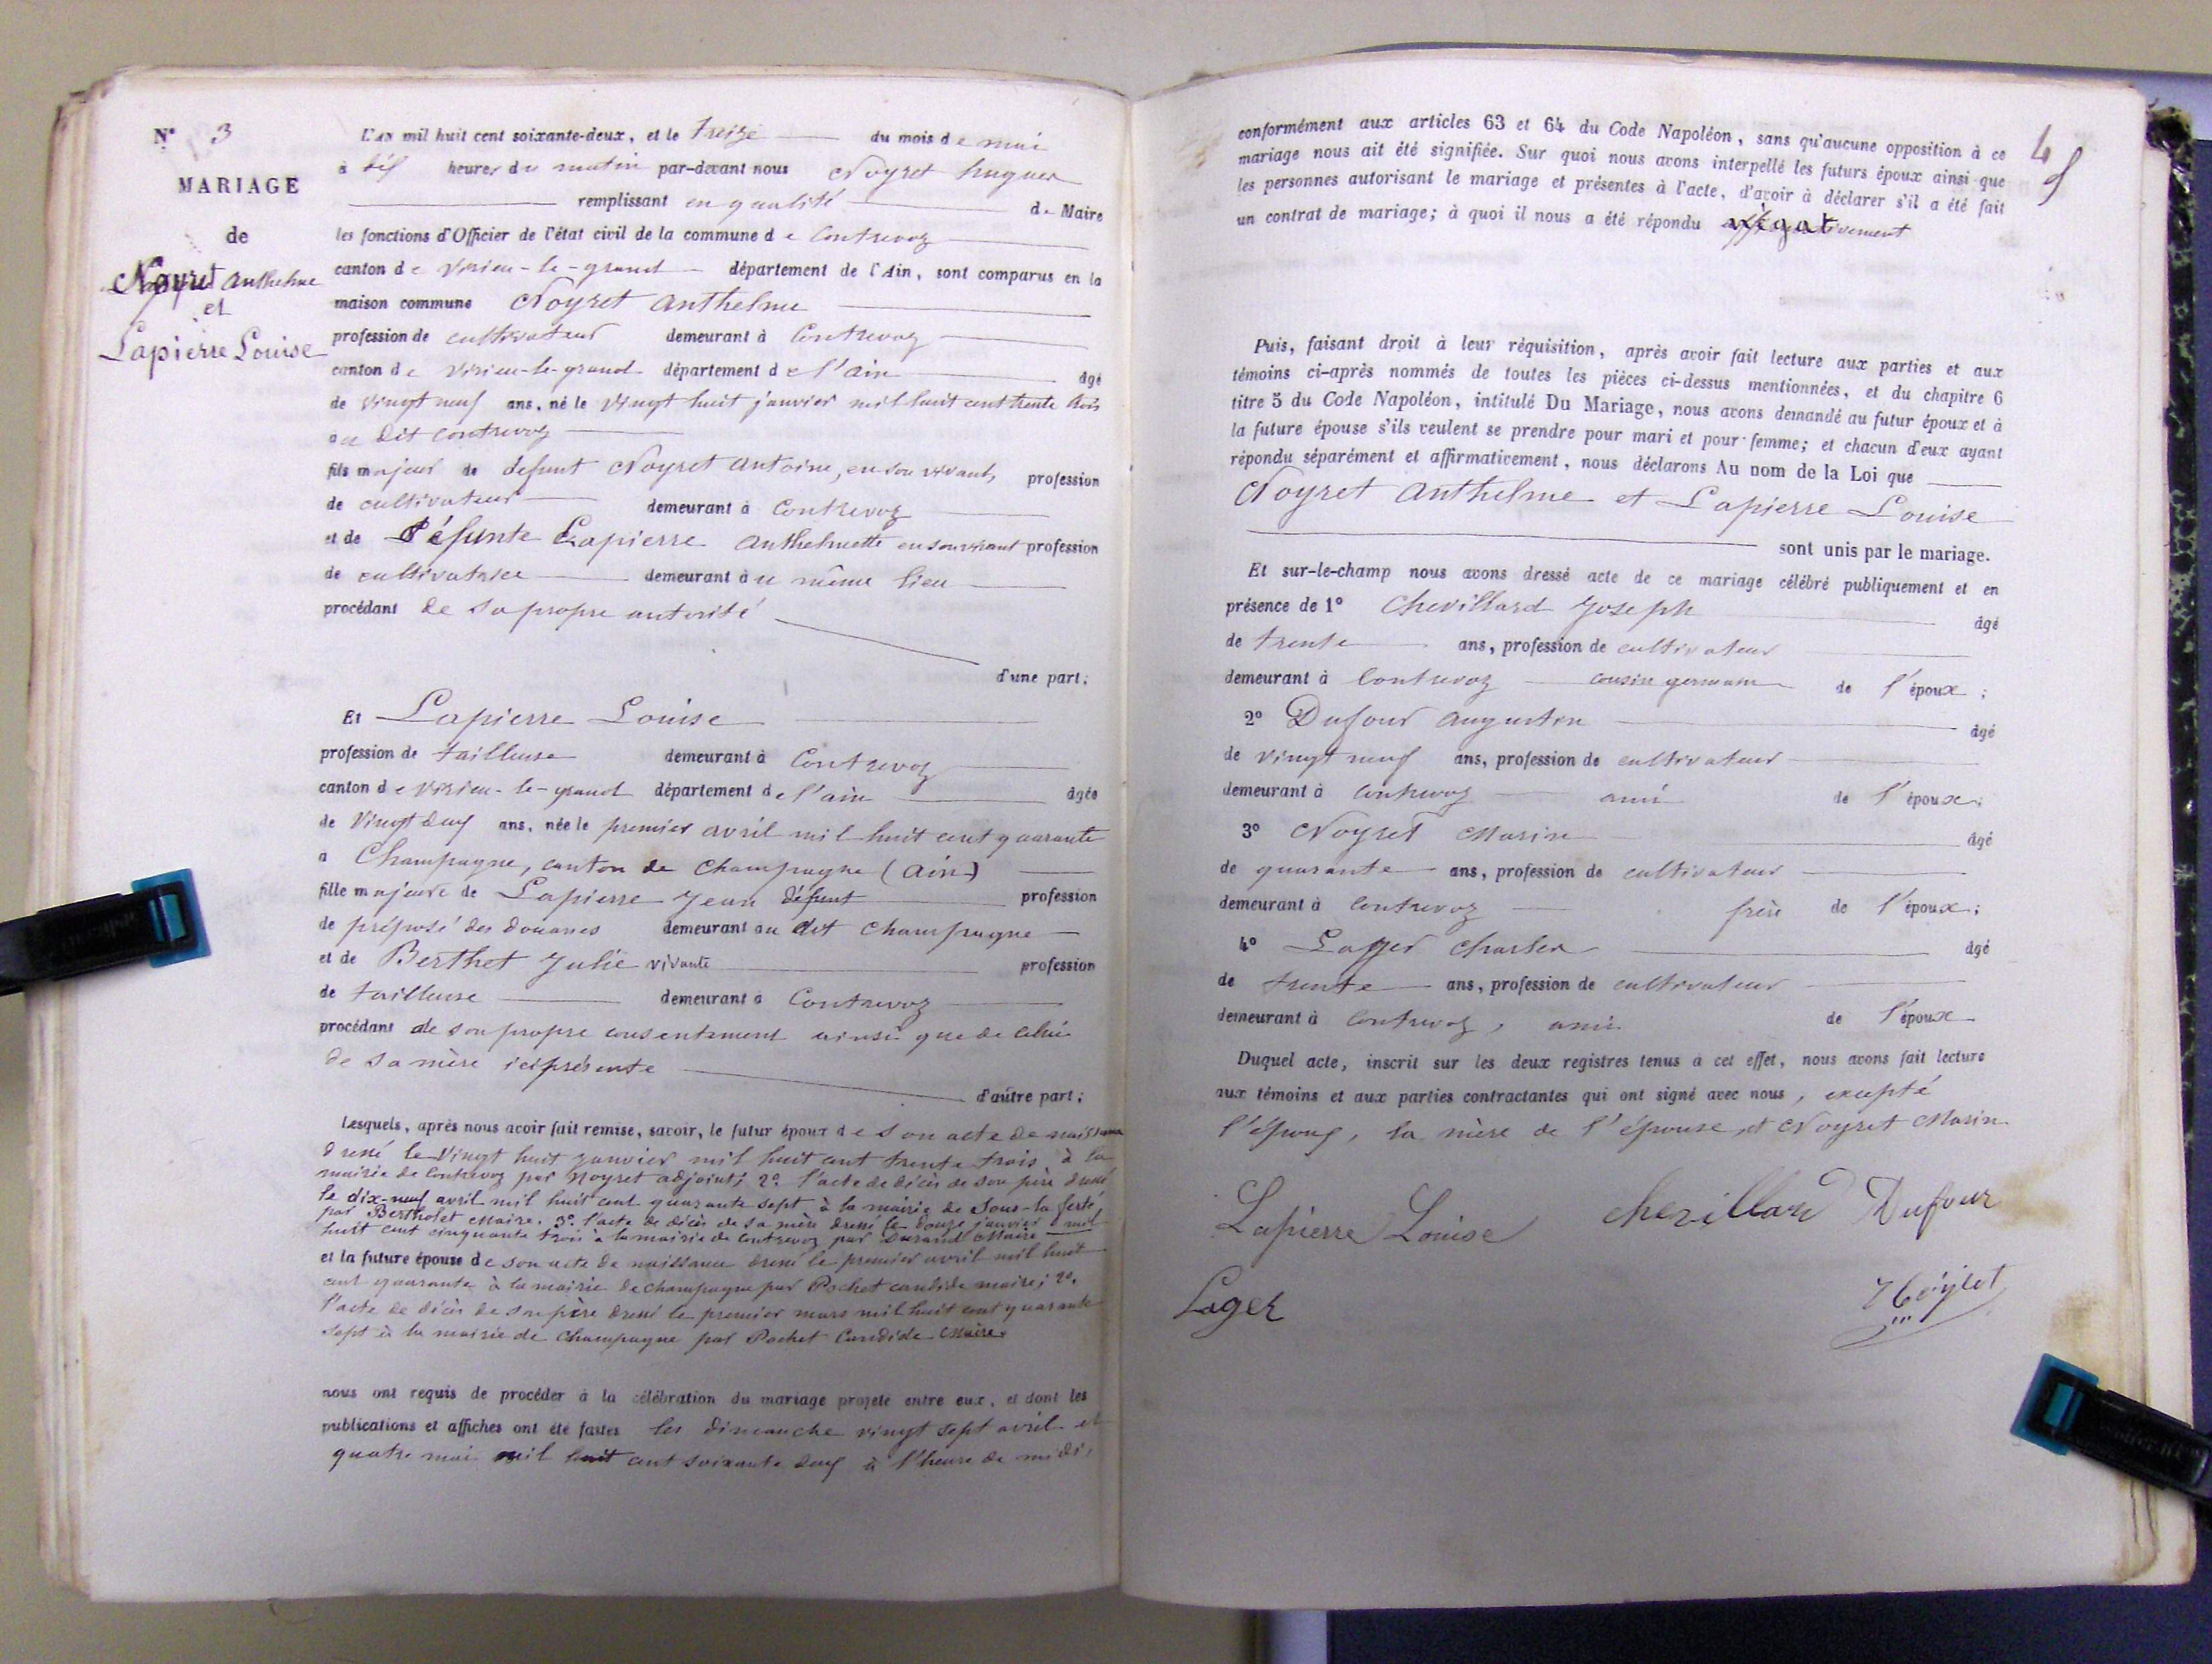 N° 3
MARIAGE
de
Noyret Anthelme
et
Lapierre Louise
L'AN mil huit cent soixante-deux, et le treize du mois de mai
à dix heures du matin par-devant nous Noyret hugues
remplissant en qualité de Maire
les fonctions d'Officier de l'état civil de la commune de Contrevoz
canton de Virieu-le-grand département de l'Ain, sont comparus en la
maison commune Noyret anthelme
profession de cultivateur demeurant à Contrevoz
canton de Virieu-le-grand département de l'ain âgé
de vingt neuf ans, né le vingt huit janvier mil huit cent trente trois
au dit Contrevoz
fils majeur de défunt Noyret antoine, en son vivant, profession
de cultivateur demeurant à Contrevoz
et de Défunte Lapierre anthelmette en son vivant profession
de cultivatrice demeurant au même lieu
procédant de sa propre autorité
d'une part;
Et Lapierre Louise
profession de tailleuse demeurant à Contrevoz
canton de virieu-le-grand département de l'ain âgée
de Vingt deux ans, née le premier avril mil huit cent quarante
à Champagne, canton de Champagne (ain)
fille majeure de Lapierre Jean défunt profession
de préposé des douanes demeurant au dit Champagne
et de Berthet Julie vivante profession
de tailleuse demeurant à Contrevoz
procédant de son propre consentement ainsi que de celui
de sa mère ici présente
d'autre part;
Lesquels, après nous avoir fait remise, savoir, le futur époux de son acte de naissance
dressé le Vingt huit janvier mil huit cent trente trois à la
mairie de Contrevoz par Noyret adjoint; 2° l'acte de décès de son père dressé
le dix-neuf avril mil huit cent quarante sept à la mairie de Sous-la ferté
par Bertholet Maire. 3° l'acte de décès de sa mère dressé le douze janvier mil
huit cent cinquante trois à la mairie de Contrevoz par Durand Maire
et la future épouse de son acte de naissance dressé le premier avril mil huit
cent quarante à la mairie de champagne par Pochet candide maire; 2°
l'acte de décès de son père dressé le premier mars mil huit cent quarante
sept à la mairie de Champagne par Pochet Candide Maire.
nous ont requis de procéder à la célébration du mariage projeté entre eux, et dont les
publications et affiches ont été faites les dimanche vingt sept avril et
quatre mai mil huit cent soixante deux à l'heure de midi,
conformément aux articles 63 et 64 du Code Napoléon, sans qu'aucune opposition à ce
mariage nous ait été signifiée. Sur quoi nous avons interpellé les futurs époux ainsi que
les personnes autorisant le mariage et présentes à l'acte, d'avoir à déclarer s'il a été fait
un contrat de mariage; à quoi il nous a été répondu négativement
Puis, faisant droit à leur réquisition, après avoir fait lecture aux parties et aux
témoins ci-après nommés de toutes les pièces ci-dessus mentionnées, et du chapitre 6
titre 5 du Code Napoléon, intitulé Du Mariage, nous avons demandé au futur époux et à
la future épouse s'ils veulent se prendre pour mari et pour femme; et chacun d'eux ayant
répondu séparément et affirmativement, nous déclarons Au nom de la Loi que
Noyret Anthelme et Lapierre Louise
sont unis par le mariage.
Et sur-le-champ nous avons dressé acte de ce mariage célébré publiquement et en
présence de 1° Chevillard Joseph âgé
de trente ans, profession de cultivateur
demeurant à Contrevoz cousin germain de l'époux;
2° Dufour augustin âgé
de vingt neuf ans, profession de cultivateur
demeurant à Contrevoz ami de l'époux;
3° Noyret Marin âgé
de quarante ans, profession de cultivateur
demeurant à Contrevoz frère de l'époux;
4° Lager Charles âgé
de trente ans, profession de cultivateur
demeurant à Contrevoz, ami de l'époux
Duquel acte, inscrit sur les deux registres tenus à cet effet, nous avons fait lecture
aux témoins et aux parties contractantes qui ont signé avec nous, excepté
l'époux, la mère de l'épouse, et Noyret Marin
Lapierre Louise chevillard Dufour
Lager